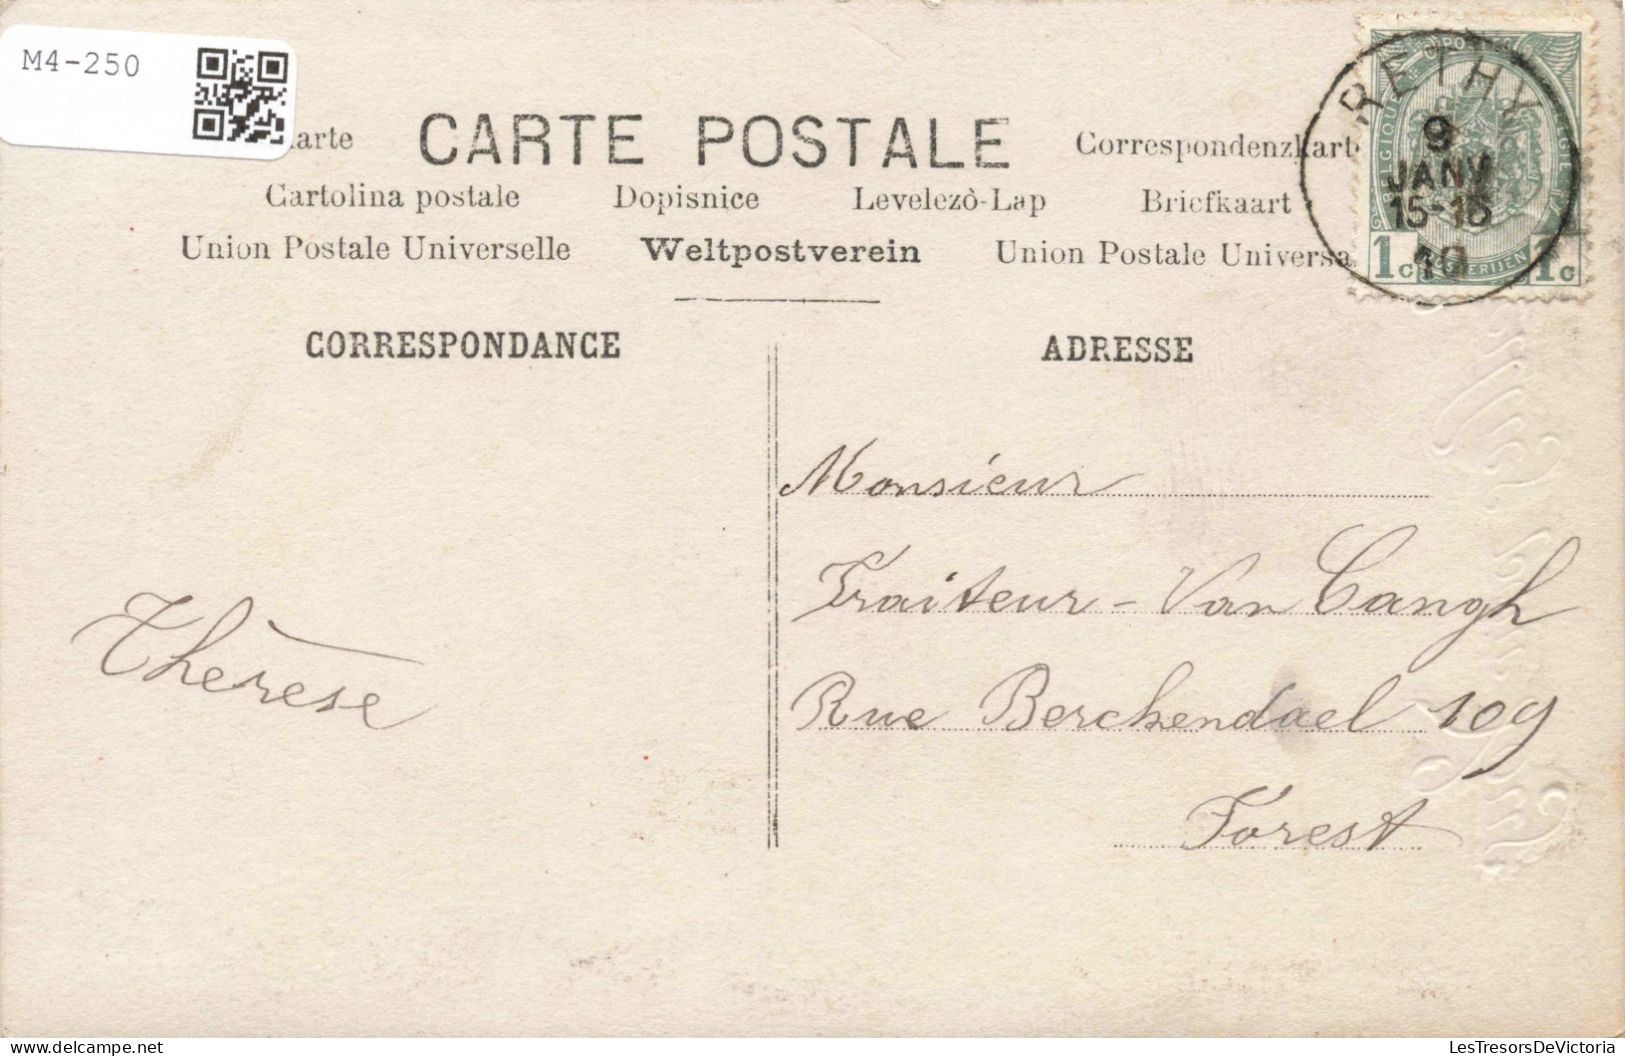 M4-250
arte
CARTE POSTALE
Correspondenzkart
Cartolina postale Dopisnice Levelezò-Lap Briefkaart
Union Postale Universelle Weltpostverein Union Postale Universa
RETHY
9
JANV
15-16
10
BELGIQUE
1c 1c
CORRESPONDANCE
ADRESSE
Monsieur
Traiteur - Van Cangh
Rue Berckendael 109
Forest
Thérèse
LesTresorsDeVictoria
LesTresorsDeVictoria.com